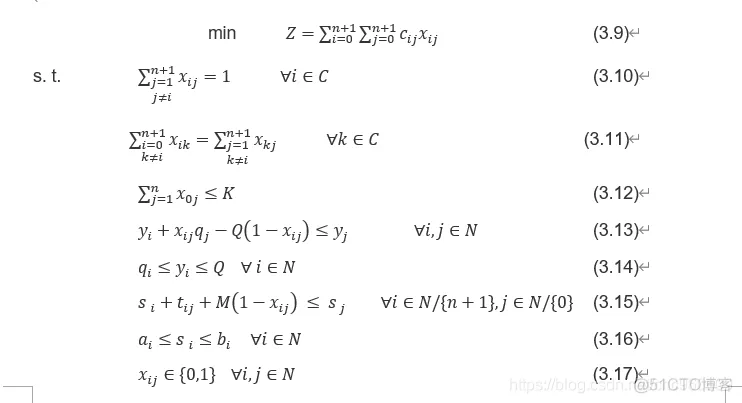 min Z = ∑_{i=0}^{n+1} ∑_{j=0}^{n+1} c_{ij}x_{ij} (3.9)↵
s. t. ∑_{j=1, j≠i}^{n+1} x_{ij} = 1 ∀i ∈ C (3.10)↵
∑_{i=0, k≠i}^{n+1} x_{ik} = ∑_{j=1, k≠j}^{n+1} x_{kj} ∀k ∈ C (3.11)↵
∑_{j=1}^{n} x_{0j} ≤ K (3.12)↵
y_i + x_{ij}q_j − Q(1 − x_{ij}) ≤ y_j ∀i, j ∈ N (3.13)↵
q_i ≤ y_i ≤ Q ∀ i ∈ N (3.14)↵
s_i + t_{ij} + M(1 − x_{ij}) ≤ s_j ∀i ∈ N/{n + 1}, j ∈ N/{0} (3.15)↵
a_i ≤ s_i ≤ b_i ∀i ∈ N (3.16)↵
x_{ij} ∈ {0,1} ∀i, j ∈ N (3.17)↵
@51CTO博客